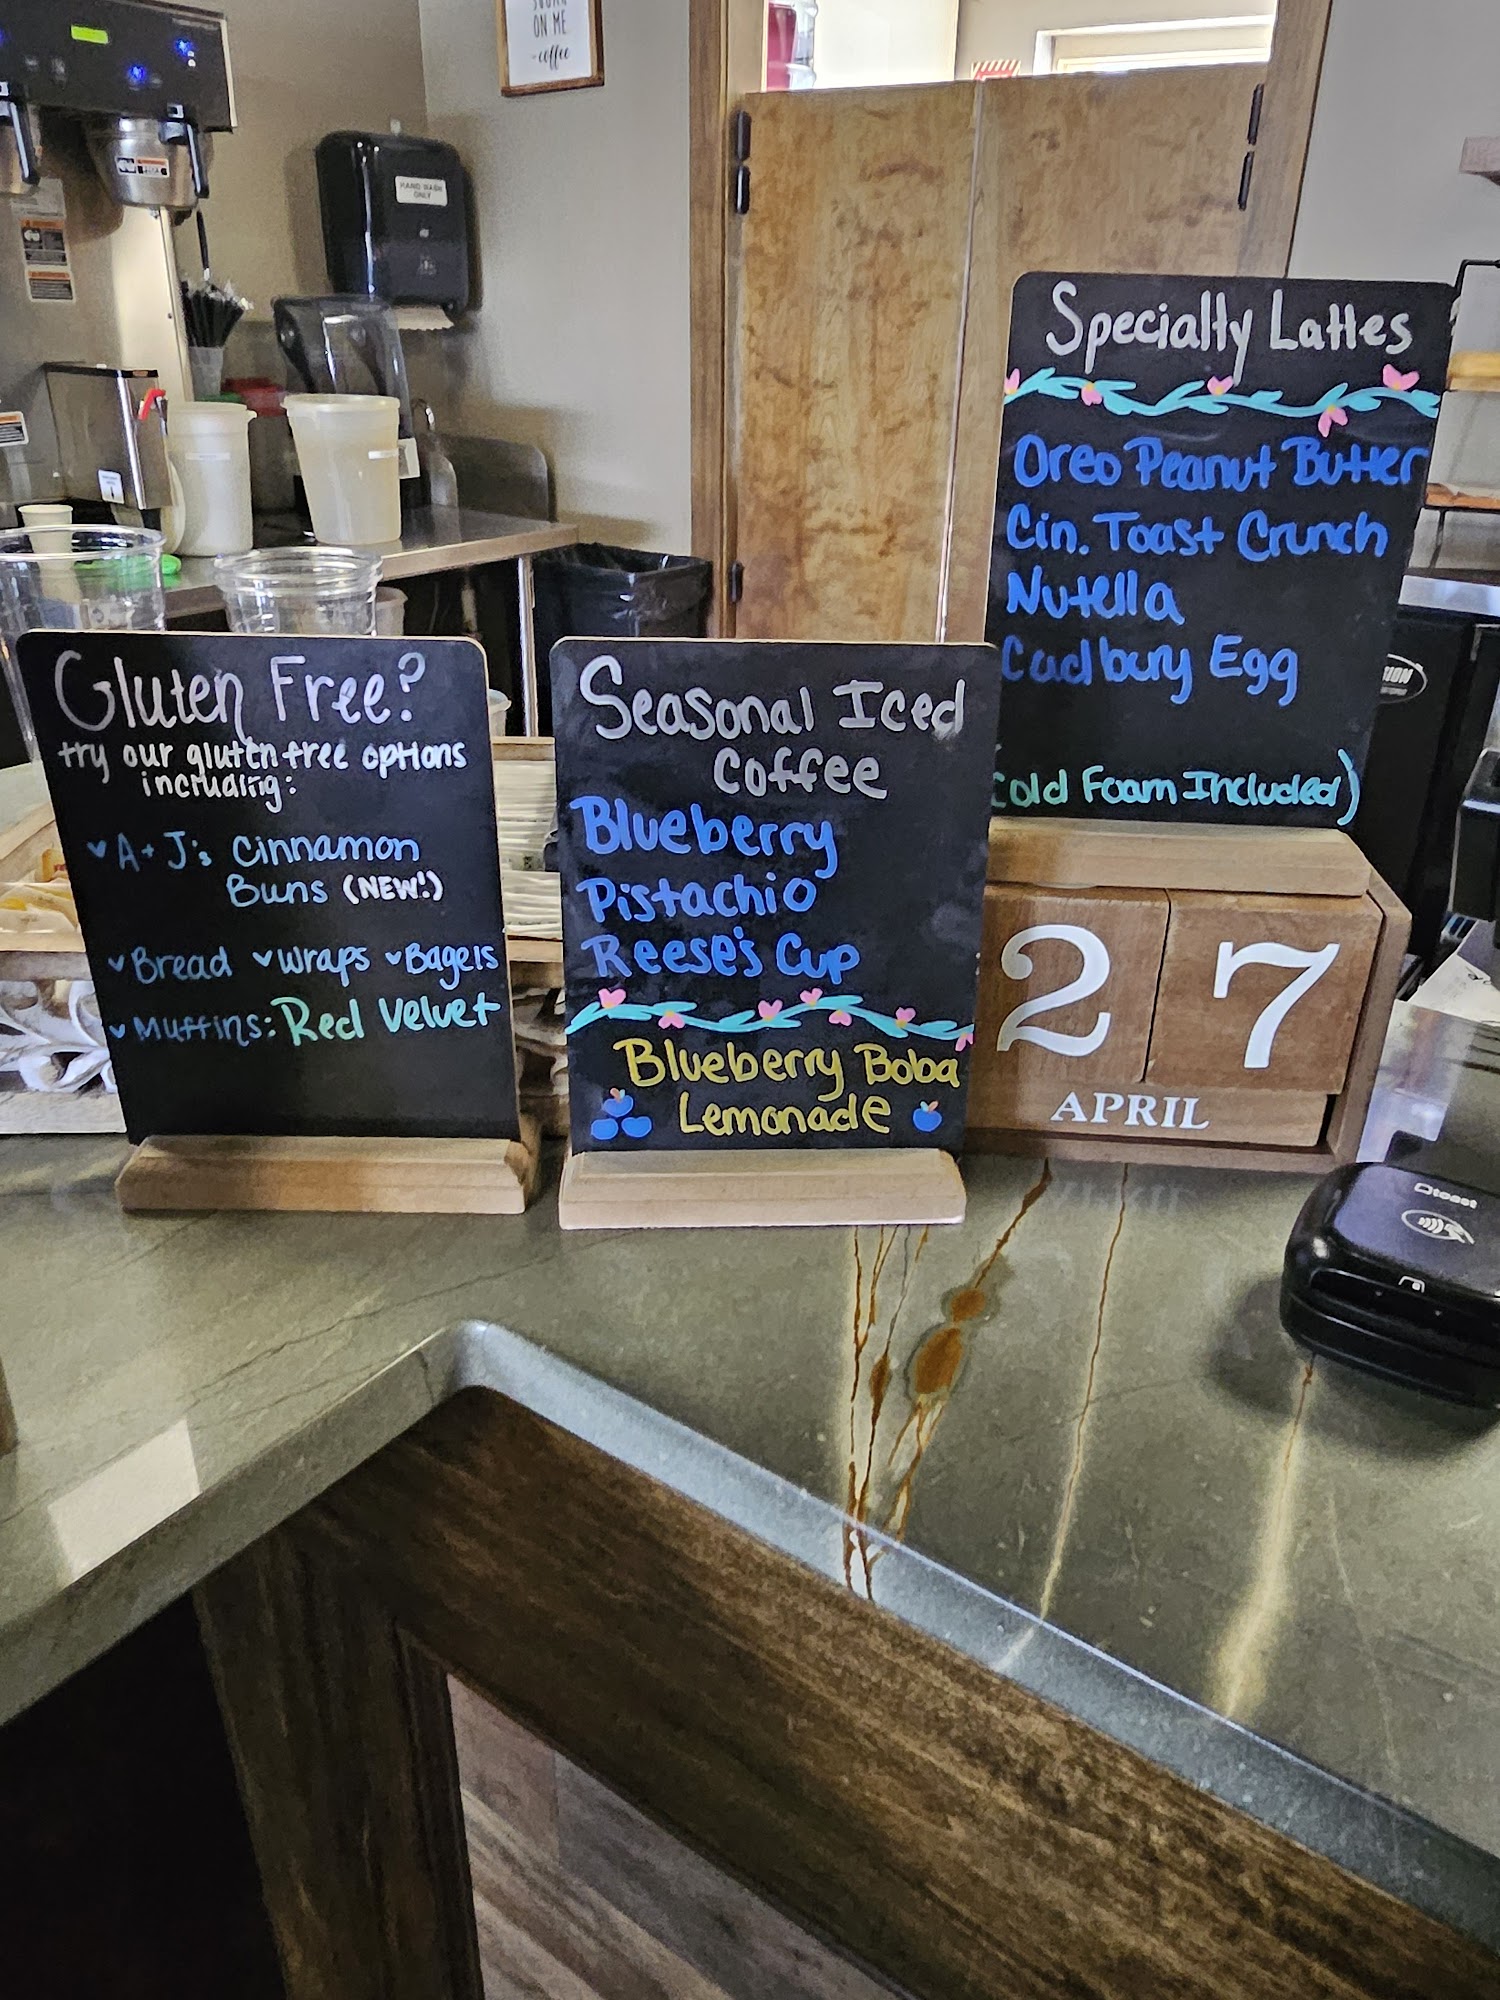 ON ME
-coffee
HAND WASH
ONLY
Specialty Lattes
Oreo Peanut Butter
Cin. Toast Crunch
Nutella
Cadbury Egg
Cold Foam Included)
Gluten Free?
try our gluten free options
including:
A + J's Cinnamon
Buns (NEW!)
Bread Wraps Bagels
Muffins: Red Velvet
Seasonal Iced
Coffee
Blueberry
Pistachio
Reese's Cup
Blueberry Boba
Lemonade
27
APRIL
toast